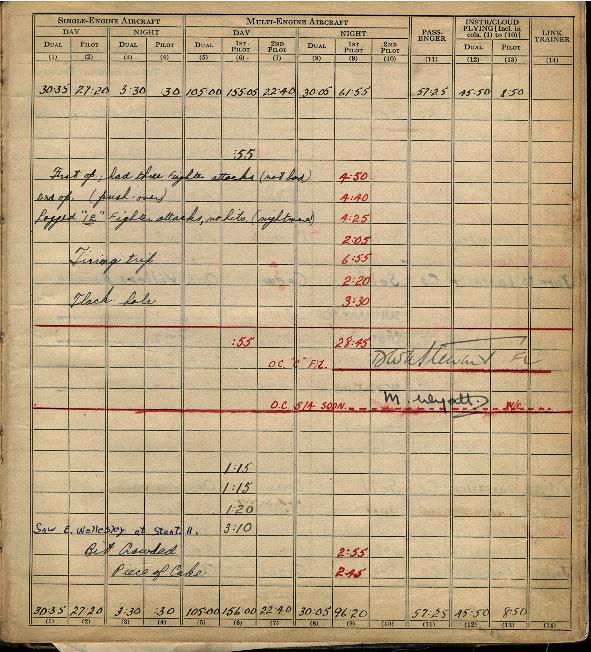 SINGLE-ENGINE AIRCRAFT MULTI-ENGINE AIRCRAFT PASS-ENGER INSTR/CLOUD FLYING [Incl. in cols. (1) to (10)] LINK TRAINER
DAY NIGHT DAY NIGHT
DUAL PILOT DUAL PILOT DUAL 1ST PILOT 2ND PILOT DUAL 1ST PILOT 2ND PILOT DUAL PILOT
(1) (2) (3) (4) (5) (6) (7) (8) (9) (10) (11) (12) (13) (14)
30·35 27·20 3·30 ·30 105·00 155·05 22·40 30·05 61·55 57·25 45·50 8·50
:55
First op; had three Fighter attacks (not bad) 4:50
2nd op. (push-over) 4:40
Logged "12" Fighter attacks, no hits. (nightmare) 4:25
2:05
Tiring trip 6:55
2:20
Flack hole 3:30
:55 28:45
O.C. "C" F/L. Stewart F/L
O.C. 514 SQDN. M. Wyatt W/C
1:15
1:15
1:20
Saw E. Wellesley at Stant. H. 3:10
Bit Crowded 2:55
Piece of Cake. 2:45
30·35 27·20 3·30 ·30 105·00 156·00 22·40 30·05 96·20 57·25 45·50 8·50
(1) (2) (3) (4) (5) (6) (7) (8) (9) (10) (11) (12) (13) (14)